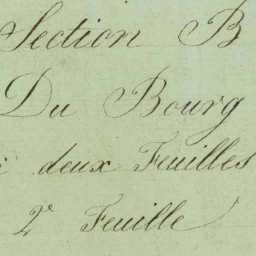 Section B
Du Bourg
deux Feuilles
2e Feuille